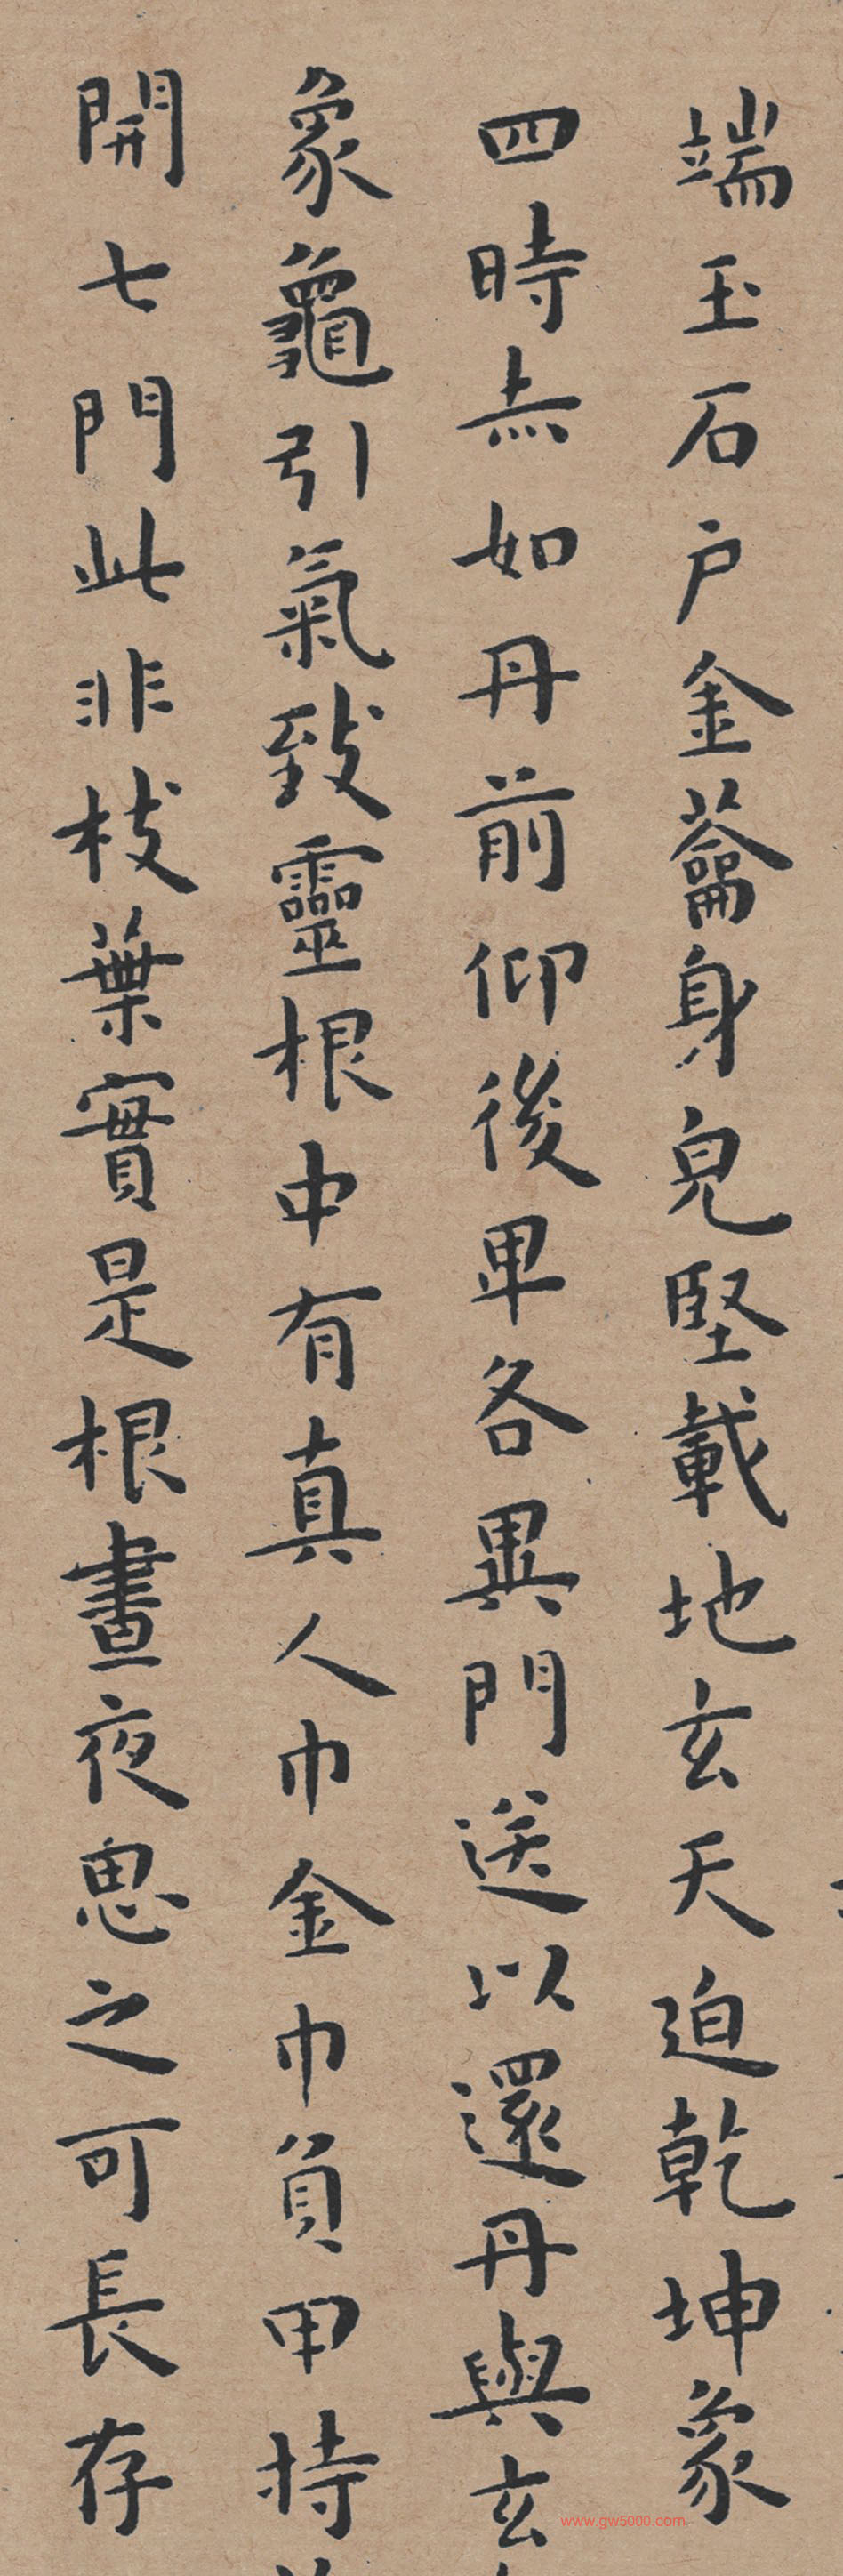 端玉石户金蘥身皃堅載地玄天迫乾坤象
四時赤如丹前仰後卑各異門送以還丹與玄
象龜引氣致靈根中有真人巾金巾負甲持
開七門此非枝葉實是根晝夜思之可長存
www.gw5000.com